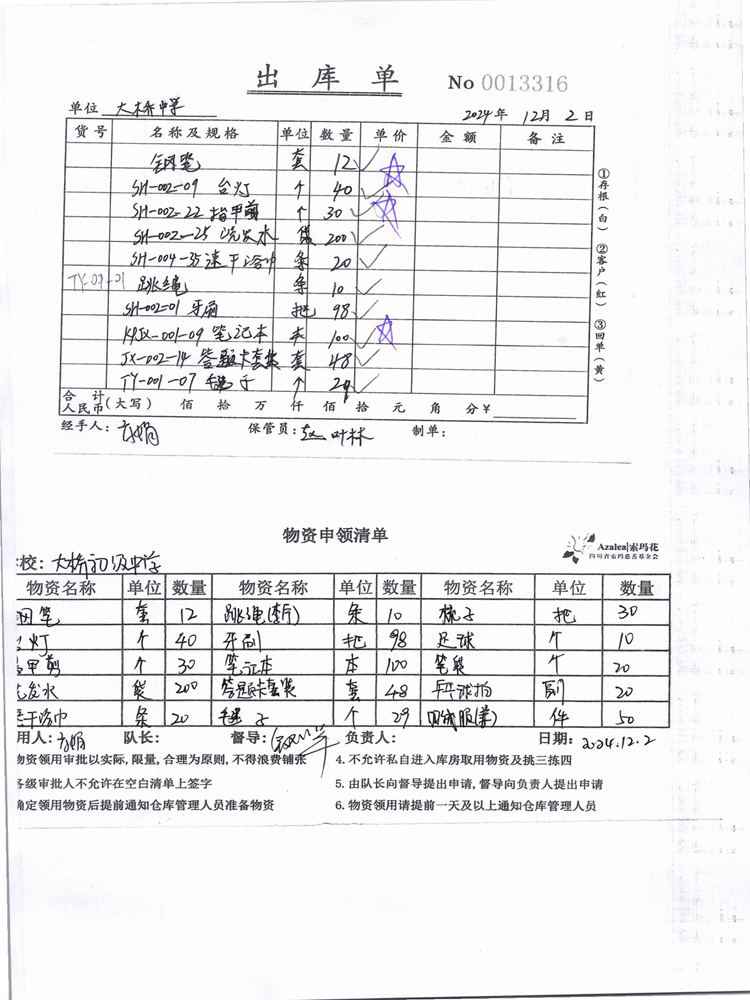 出库单 No 0013316
单位 大桥中学 2024年 12月 2日
货号 名称及规格 单位 数量 单价 金额 备注
钢笔 套 12
SH-002-09 台灯 个 40
SH-002-22 指甲剪 个 30
SH-002-25 洗发水 袋 200
SH-004-35 速干浴巾 条 20
TY-09-01 跳绳 条 10
SH-002-01 牙刷 把 98
-001-09 笔记本 本 100
JX-002-14 答题卡套装 套 48
TY-001-07 毽子 个 29
合计人民币(大写) 佰 拾 万 仟 佰 拾 元 角 分 ¥
经手人: 保管员: 叶林 制单:
①存根(白) ②客户(红) ③回单(黄)
物资申领清单
Azalea|索玛花
四川省索玛慈善基金会
校: 大桥初级中学
物资名称 单位 数量 物资名称 单位 数量 物资名称 单位 数量
钢笔 套 12 跳绳(新) 条 10 梳子 把 30
台灯 个 40 牙刷 把 98 足球 个 10
指甲剪 个 30 笔记本 本 100 笔袋 个 20
洗发水 袋 200 答题卡套装 套 48 乒乓球拍 副 20
速干浴巾 条 20 毽子 个 29 件 50
用人: 队长: 督导: 负责人: 日期: 2024.12.2
物资领用审批以实际,限量,合理为原则,不得浪费铺张 4.不允许私自进入库房取用物资及挑三拣四
各级审批人不允许在空白清单上签字 5.由队长向督导提出申请,督导向负责人提出申请
确定领用物资后提前通知仓库管理人员准备物资 6.物资领用请提前一天及以上通知仓库管理人员